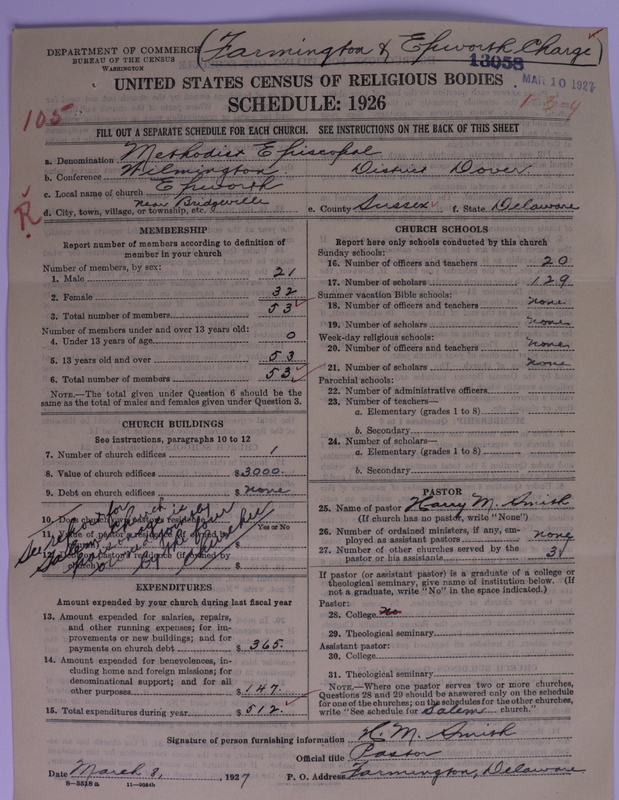 DEPARTMENT OF COMMERCE (Farmington & Epworth Charge)
BUREAU OF THE CENSUS
WASHINGTON
13058
MAR 10 1927
UNITED STATES CENSUS OF RELIGIOUS BODIES
SCHEDULE: 1926
1-3-4
105
FILL OUT A SEPARATE SCHEDULE FOR EACH CHURCH. SEE INSTRUCTIONS ON THE BACK OF THIS SHEET
a. Denomination Methodist Episcopal
b. Conference Wilmington. District Dover.
c. Local name of church Epworth
d. City, town, village, or township, etc. near Bridgeville e. County Sussex f. State Delaware
R
MEMBERSHIP
Report number of members according to definition of
member in your church
Number of members, by sex:
1. Male 21
2. Female 32
3. Total number of members 53
Number of members under and over 13 years old:
4. Under 13 years of age 0
5. 13 years old and over 53
6. Total number of members 53
NOTE.—The total given under Question 6 should be
the same as the total of males and females given under Question 3.
CHURCH BUILDINGS
See instructions, paragraphs 10 to 12
7. Number of church edifices 1
8. Value of church edifices $3000.
9. Debt on church edifices $ none
10. Does church own pastor's residence
Yes or No
11. Value of pastor's residence (if owned by
church) $
12. Debt on pastor's residence (if owned by
church) $
See for
Salem church
parsonage is
owned by
by the four
churches
EXPENDITURES
Amount expended by your church during last fiscal year
13. Amount expended for salaries, repairs,
and other running expenses; for im-
provements or new buildings; and for
payments on church debt $ 365.
14. Amount expended for benevolences, in-
cluding home and foreign missions; for
denominational support; and for all
other purposes $ 147.
15. Total expenditures during year $ 512.
CHURCH SCHOOLS
Report here only schools conducted by this church
Sunday schools:
16. Number of officers and teachers 20
17. Number of scholars 129
Summer vacation Bible schools:
18. Number of officers and teachers none
19. Number of scholars none
Week-day religious schools:
20. Number of officers and teachers none
21. Number of scholars none
Parochial schools:
22. Number of administrative officers
23. Number of teachers—
a. Elementary (grades 1 to 8)
b. Secondary
24. Number of scholars—
a. Elementary (grades 1 to 8)
b. Secondary
PASTOR
25. Name of pastor Harry M. Smith
(If church has no pastor, write "None")
26. Number of ordained ministers, if any, em-
ployed as assistant pastors none
27. Number of other churches served by the
pastor or his assistants 3
If pastor (or assistant pastor) is a graduate of a college or
theological seminary, give name of institution below. (If
not a graduate, write "No" in the space indicated.)
Pastor:
28. College no
29. Theological seminary
Assistant pastor:
30. College
31. Theological seminary
NOTE.—Where one pastor serves two or more churches,
Questions 28 and 29 should be answered only on the schedule
for one of the churches; on the schedules for the other churches,
write "See schedule for Salem church."
Signature of person furnishing information H. M. Smith
Official title Pastor
Date March 8, 1927 P. O. Address Farmington, Delaware
8-5518a 11-9084b